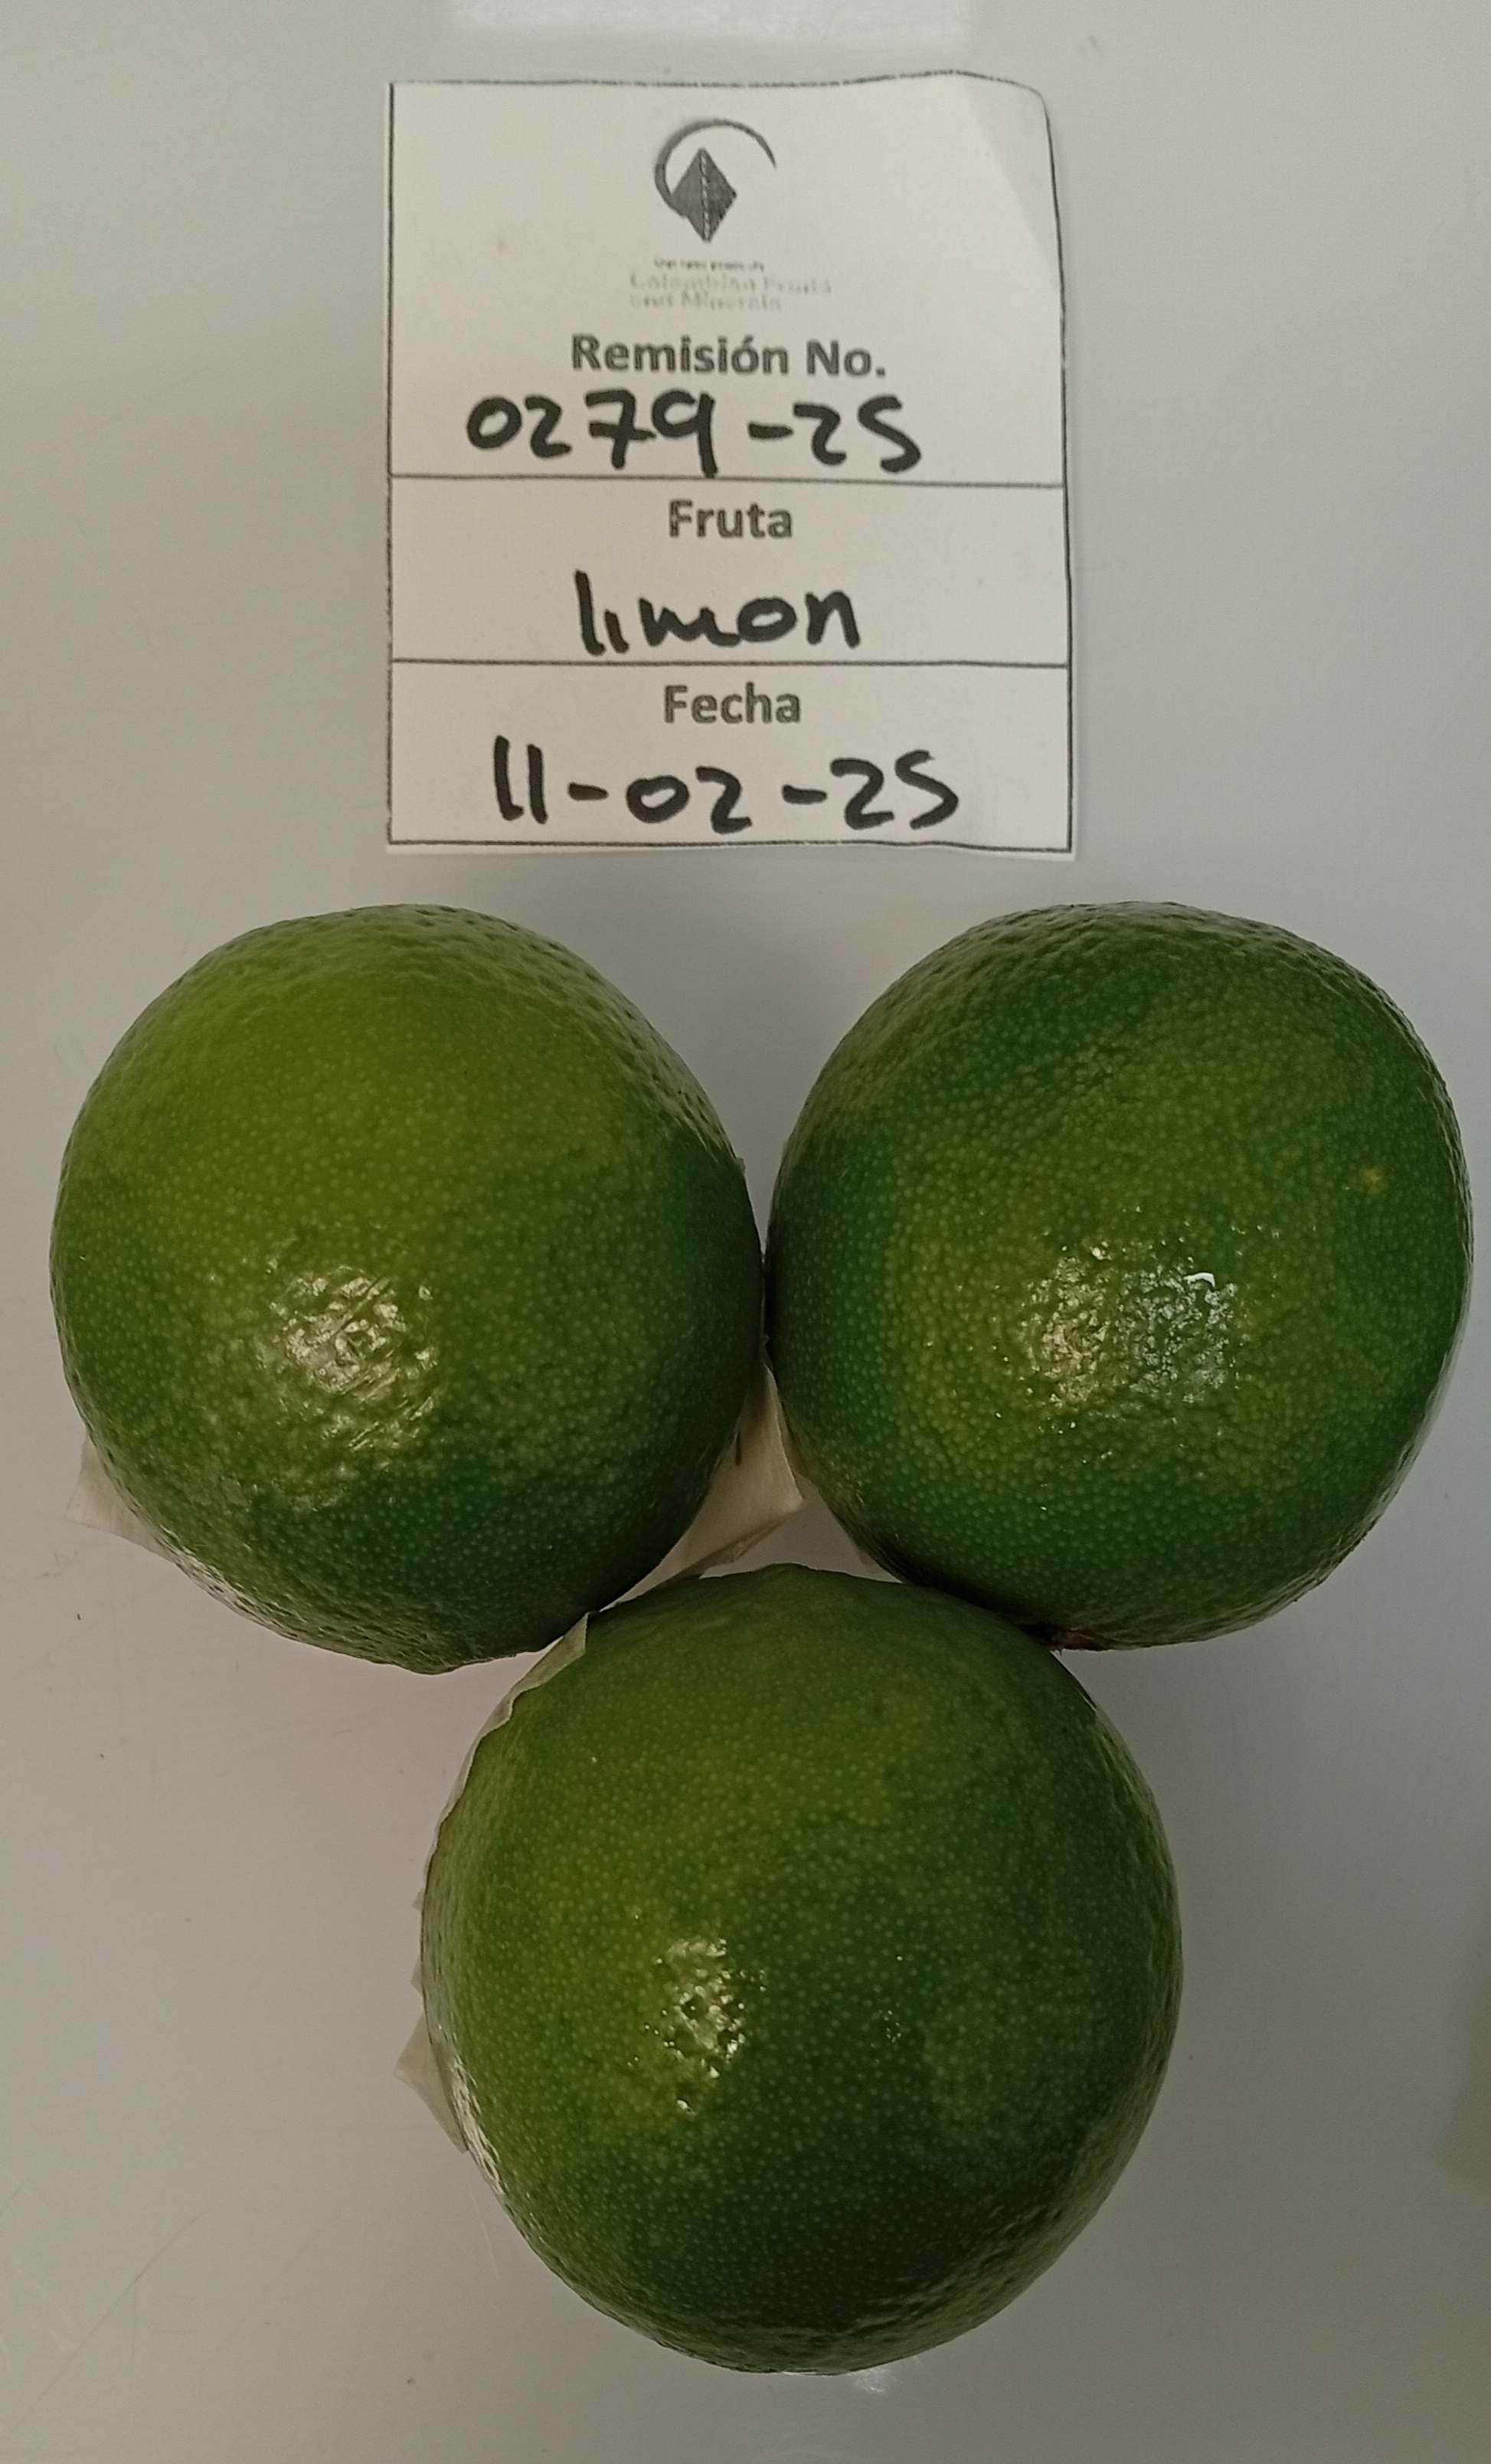 Colombian Fruits
and Minerals
Remisión No.
0279-25
Fruta
limon
Fecha
11-02-25